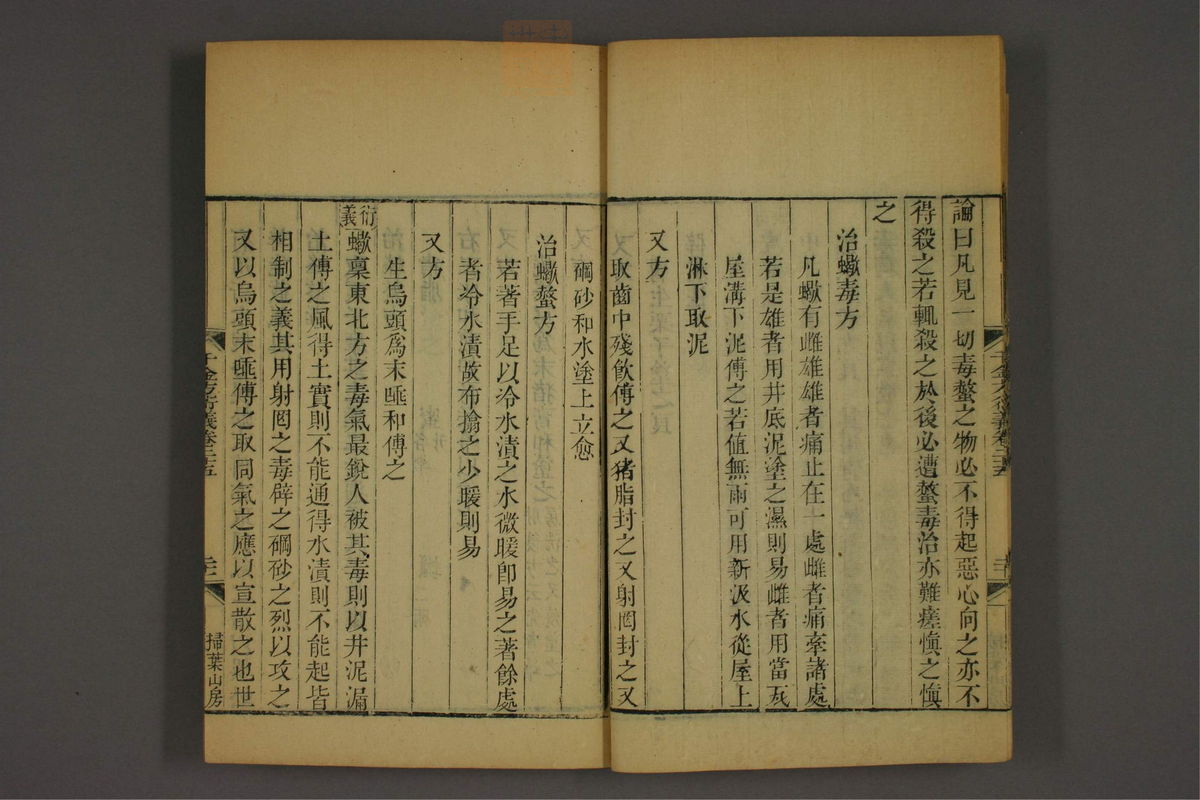 論曰凡見一切毒螫之物必不得起惡心向之亦不
得殺之若輒殺之於後必遭螫毒治亦難瘥慎之慎
之
治蠍毒方
凡蠍有雌雄雄者痛止在一處雌者痛牽諸處
若是雄者用井底泥塗之濕則易雌者用當瓦
屋溝下泥傅之若值無雨可用新汲水從屋上
淋下取泥
又方
取齒中殘飲傅之又猪脂封之又射罔封之又
硇砂和水塗上立愈
治蠍螫方
若著手足以冷水漬之水微暖卽易之著餘處
者冷水漬故布搨之少暖則易
又方
生烏頭爲末唾和傅之
衍義
蠍稟東北方之毒氣最銳人被其毒則以井泥漏
土傅之風得土實則不能通得水漬則不能起皆
相制之義其用射罔之毒辟之硇砂之烈以攻之
又以烏頭末唾傅之取同氣之應以宣散之也世
千金方衍義卷二十五
掃葉山房